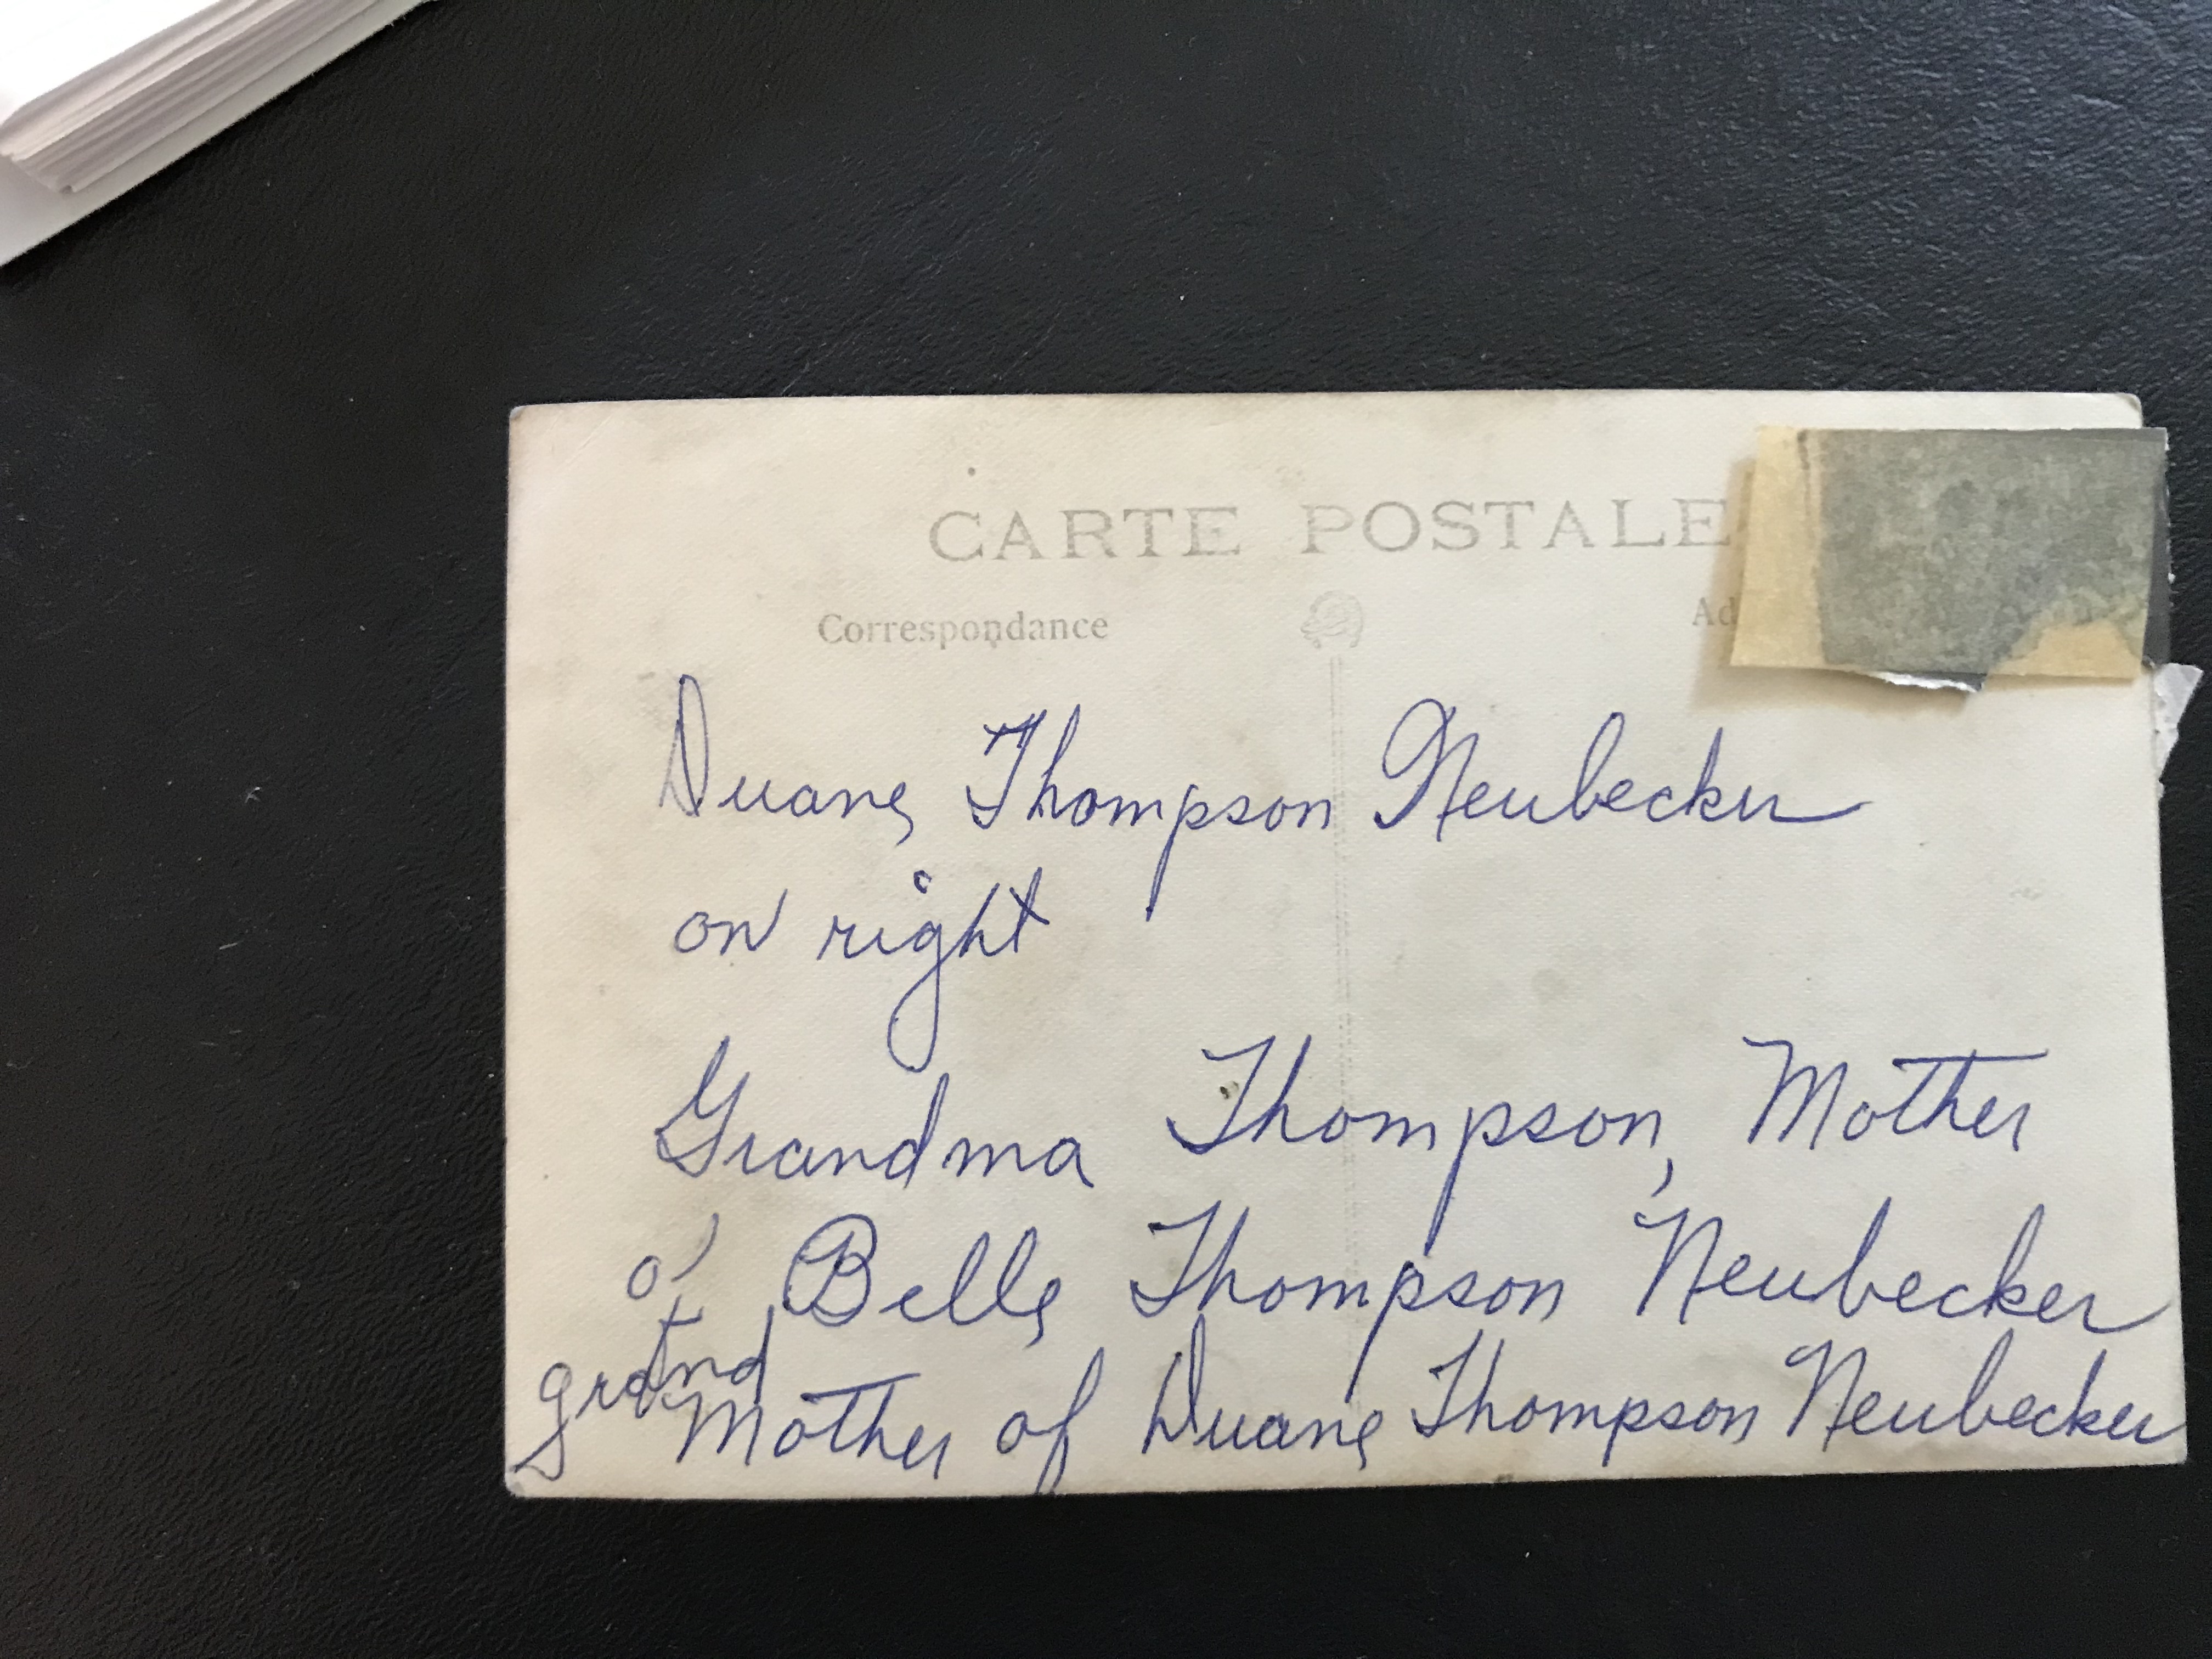 CARTE POSTALE
Correspondance Ad
Duane Thompson Neubecker
on right
Grandma Thompson, Mother
of Belle Thompson Neubecker
grand
Mother of Duane Thompson Neubecker